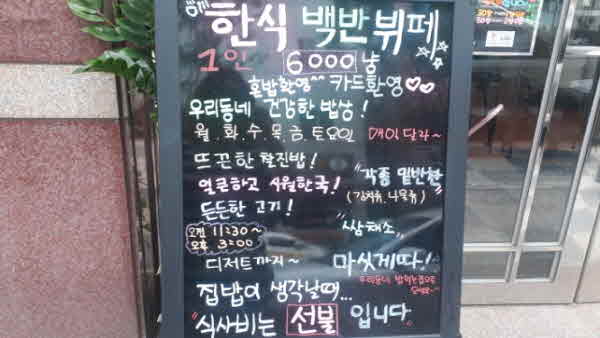 한식 백반 뷔페
1인 6000냥
혼밥환영^^ 카드환영♡♡
우리동네 건강한 밥상!
월.화.수.목.금.토요일 메뉴 달라~
뜨끈한 찰진밥!
얼큰하고 시원한국!
"각종 밑반찬"
(김치류, 나물류)
든든한 고기!
"쌈채소"
오전 11:30~
오후 3:00
디저트까지~
마싯게따!
집밥이 생각날때...
"식사비는 선불입니다"